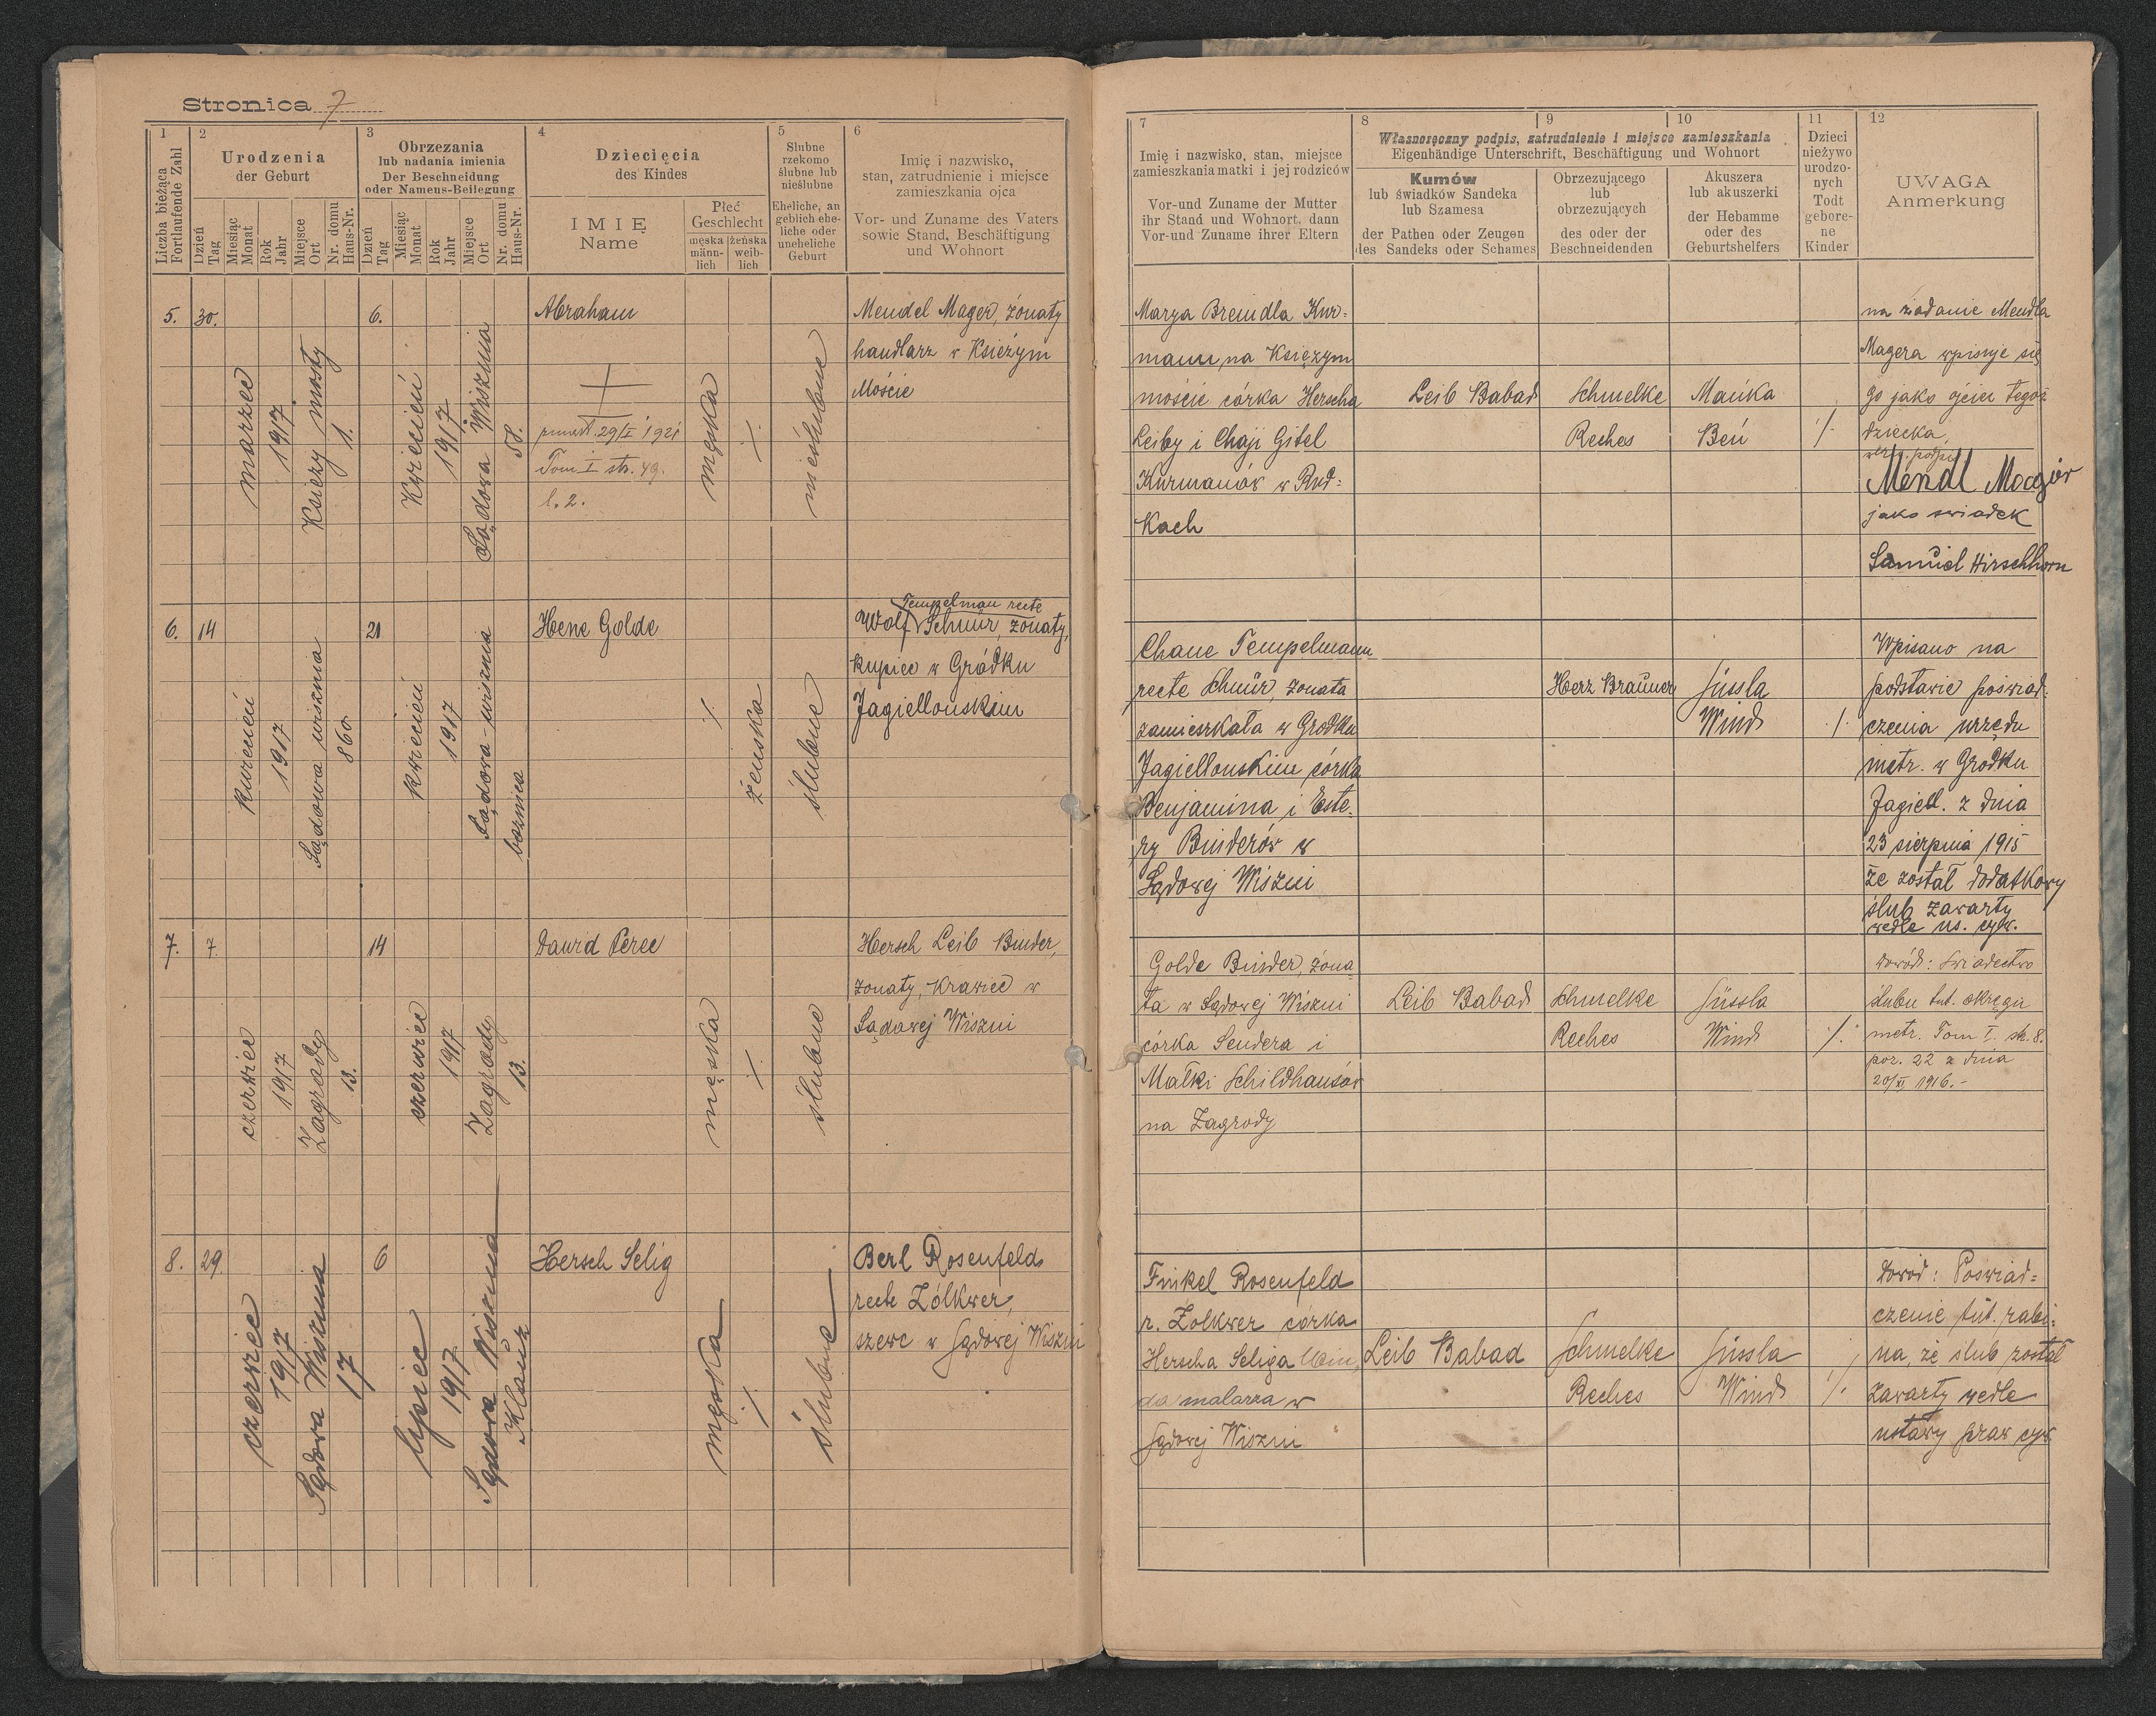 Stronica 7
1
Liczba bieżąca
Fortlaufende Zahl
2
Urodzenia
der Geburt
Dzień
Tag
Miesiąc
Monat
Rok
Jahr
Miejsce
Ort
Nr. domu
Haus-Nr.
3
Obrzezania
lub nadania imienia
Der Beschneidung
oder Namens-Beilegung
Dzień
Tag
Miesiąc
Monat
Rok
Jahr
Miejsce
Ort
Nr. domu
Haus-Nr.
4
Dziecięcia
des Kindes
IMIĘ
Name
Płeć
Geschlecht
męska
männ-
lich
żeńska
weib-
lich
5
Ślubne
rzekomo
ślubne lub
nieślubne
Eheliche, an
geblich ehe-
liche oder
uneheliche
Geburt
6
Imię i nazwisko,
stan, zatrudnienie i miejsce
zamieszkania ojca
Vor- und Zuname des Vaters
sowie Stand, Beschäftigung
und Wohnort
7
Imię i nazwisko, stan, miejsce
zamieszkania matki i jej rodziców
Vor-und Zuname der Mutter
ihr Stand und Wohnort, dann
Vor-und Zuname ihrer Eltern
8
9
10
Własnoręczny podpis, zatrudnienie i miejsce zamieszkania
Eigenhändige Unterschrift, Beschäftigung und Wohnort
Kumów
lub świadków Sandeka
lub Szamesa
der Pathen oder Zeugen
des Sandeks oder Schames
Obrzezującego
lub
obrzezujących
des oder der
Beschneidenden
Akuszera
lub akuszerki
der Hebamme
oder des
Geburtshelfers
11
Dzieci
nieżywo
urodzo-
nych
Todt
gebore-
ne
Kinder
12
UWAGA
Anmerkung
5.
30.
marzec
1917
Księży mosty
1.
6.
Kwiecień
1917
Sądowa Wisznia
58.
Abraham
zmarł 29/I 1921
Tom I str. 49.
l. 2.
męska
./.
nieślubne
Mendel Mager, żonaty
handlarz w Księżym
Moście
Marya Breindla Kur=
mann, na Księżym
moście córka Herscha
Leiby i Chaji Gitel
Kurmanów w Rud=
kach
Leib Babad
Schmelke
Reches
Mańka
Beń
./.
na żądanie Mendla
Magera wpisuje się
go jako ojciec tegoż
dziecka
Mendl Magier
jako swiadek
Samuel Hirschhorn
6.
14
kwiecień
1917
Sądowa wisznia
860
21
kwiecień
1917
Sądowa-wisznia
bożnica
Hene Golde
./.
żeńska
ślubne
Tempelman recte
Wolf Schnür, żonaty,
kupiec w Gródku
Jagiellońskim
Chane Tempelmann
recte Schnür, żonata
zamieszkała w Gródku
Jagiellońskim córka
Benjamina i Este-
ry Binderów w
Sądowej Wiszni
Herz Brauner
Süssla
Wind
./.
Wpisano na
podstawie poświad-
czenia urzędu
metr. w Gródku
Jagiell. z dnia
23 sierpnia 1915
że został dodatkowy
ślub zawarty
wedle us. cyw.
7.
7.
czerwiec
1917
Zagrody
13.
14
czerwiec
1917
Zagrody
13.
Dawid Perec
męska
./.
ślubne
Hersch Leib Binder,
żonaty, krawiec w
Sądowej Wiszni
Golde Binder, żona-
ta w Sądowej Wiszni
córka Sendera i
Małki Schildhausów
na Zagrody
Leib Babad
Schmelke
Reches
Süssla
Wind
./.
dowód: świadectwo
ślubu tut. okręgu
metr. Tom I. str. 8.
poz. 22 z dnia
20/XI 1916.-
8.
29.
czerwiec
1917
Sądowa Wisznia
17
6
lipiec
1917
Sądowa Wisznia
Klauz
Hersch Selig
męska
./.
ślubne
Berl Rosenfeld
recte Żółkwer,
szewc w Sądowej Wiszni
Finkel Rosenfeld
r. Żolkwer córka
Herscha Seliga Win
da malarza w
Sądowej Wiszni
Leib Babad
Schmelke
Reches
Süssla
Wind
./.
dowód: Poświad=
czenie tut. rabi-
na, że ślub został
zawarty wedle
ustawy praw cyw.